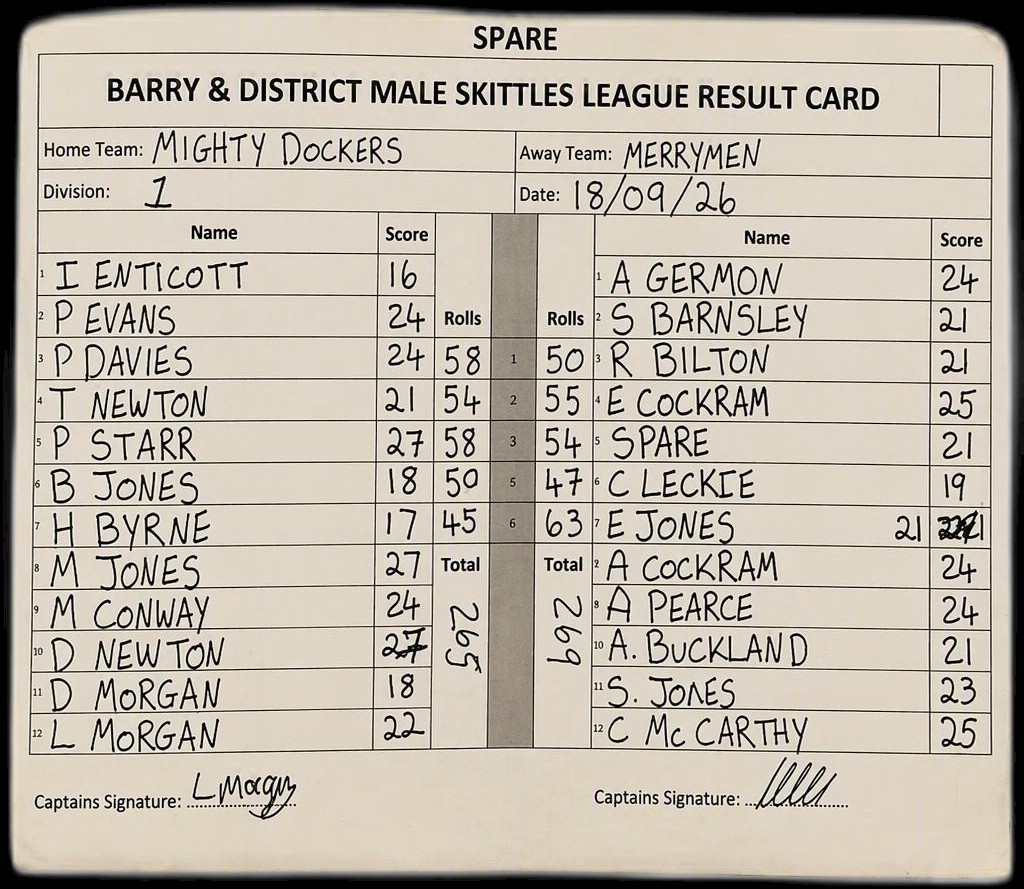 SPARE
BARRY & DISTRICT MALE SKITTLES LEAGUE RESULT CARD
Home Team: MIGHTY DOCKERS Away Team: MERRYMEN
Division: 1 Date: 18/09/26
Name Score Name Score
1 I ENTICOTT 16 1 A GERMON 24
2 P EVANS 24 Rolls Rolls 2 S BARNSLEY 21
3 P DAVIES 24 58 1 50 3 R BILTON 21
4 T NEWTON 21 54 2 55 4 E COCKRAM 25
5 P STARR 27 58 3 54 5 SPARE 21
6 B JONES 18 50 5 47 6 C LECKIE 19
7 H BYRNE 17 45 6 63 7 E JONES 21
8 M JONES 27 Total Total 2 A COCKRAM 24
9 M CONWAY 24 265 269 8 A PEARCE 24
10 D NEWTON 27 10 A. BUCKLAND 21
11 D MORGAN 18 11 S. JONES 23
12 L MORGAN 22 12 C McCARTHY 25
Captains Signature: L Morgan Captains Signature: